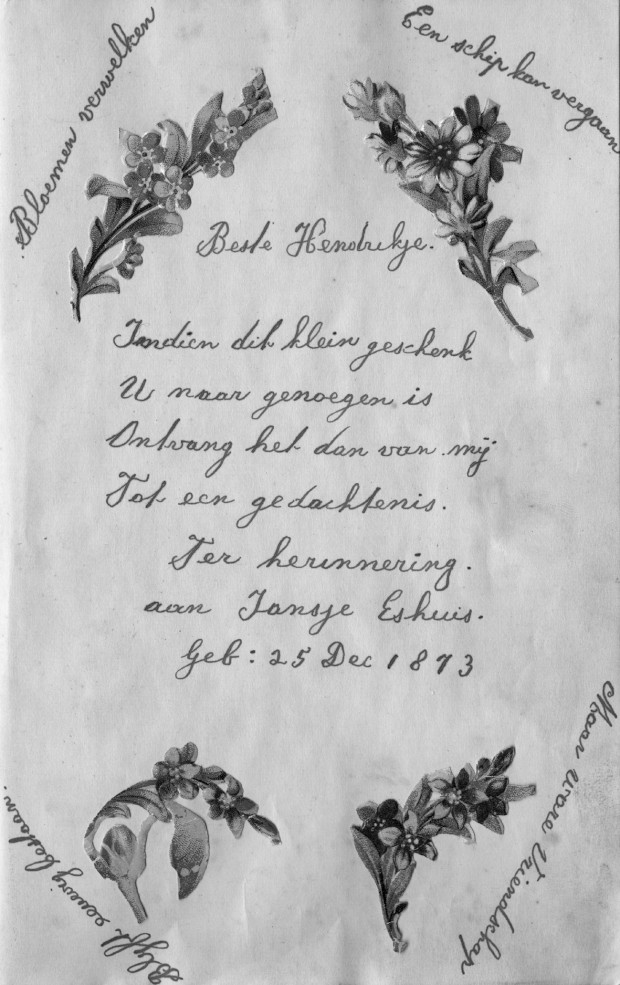 Bloemen verwelken
Een schip kan vergaan
Beste Hendrikje.
Indien dit klein geschenk
U naar genoegen is
Ontvang het dan van mij
Tot een gedachtenis.
Ter herinnering.
aan Jansje Eshuis.
Geb: 25 Dec 1873
Maar ware Vriendschap
Blyft eeuwig bestaan.